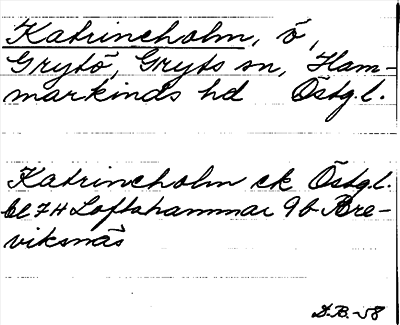 Katrineholm, ö,
Grytö, Gryts sn, Ham-
markinds hd Östg.l.
Katrineholm ek Östg.l.
bl 7H Loftahammar 9b Bre-
viksnäs
D.B.-58